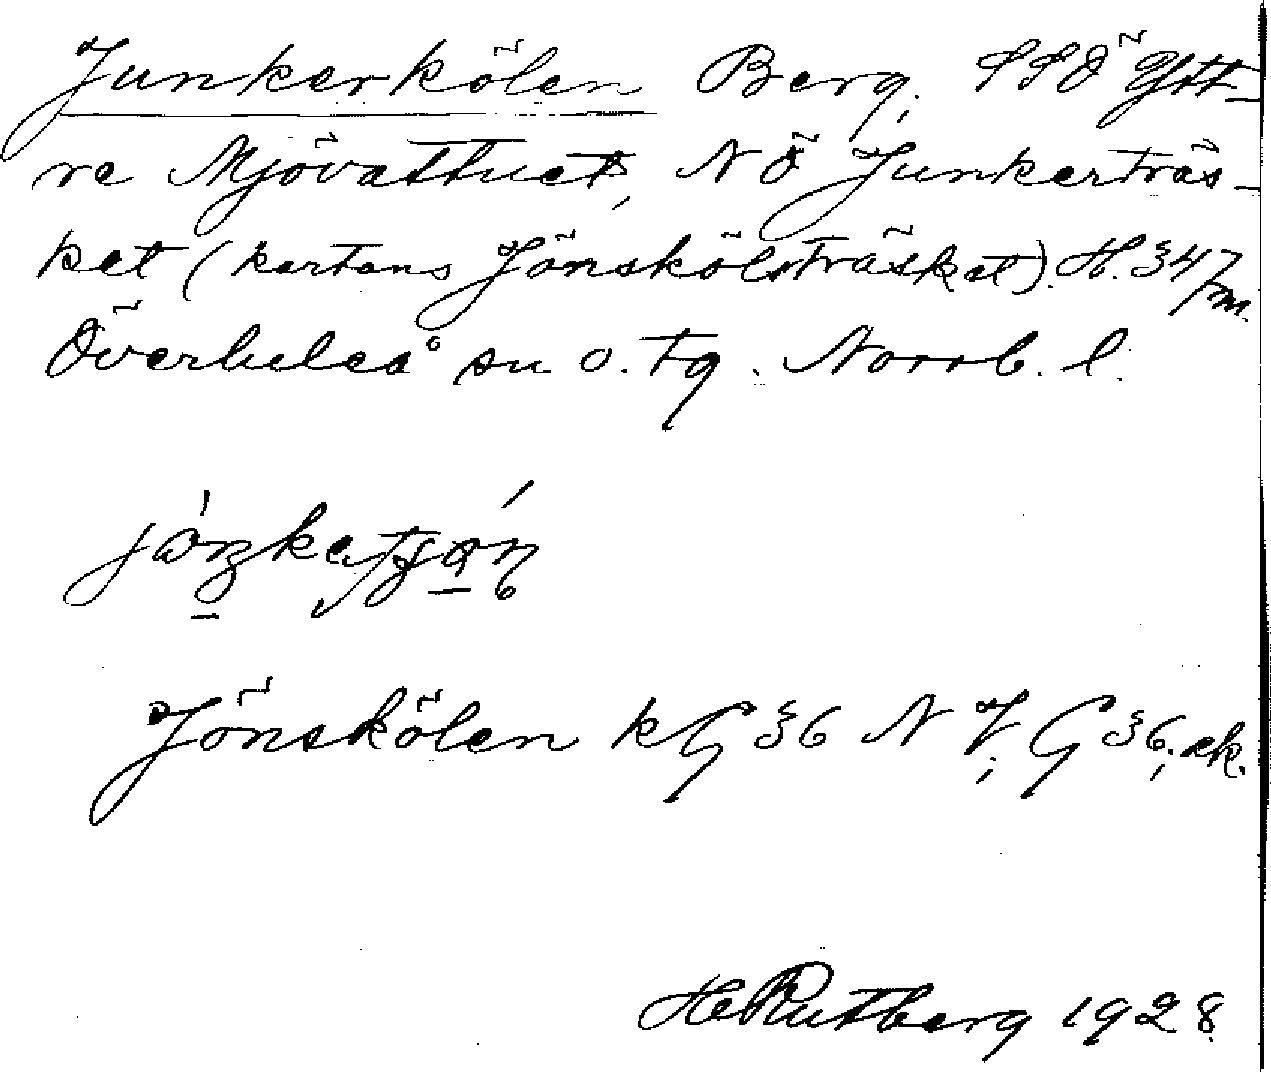 Junkerkölen Berg, SSÖ Ytt-
re Mjövattnet, NÖ Junkerträs-
ket (kartans Jönskölsträsket). H. 347 m.
Överluleå sn o. tg. Norrb. l.
Jönskölen kG 36 N V; G 36; ek.
HRutberg 1928